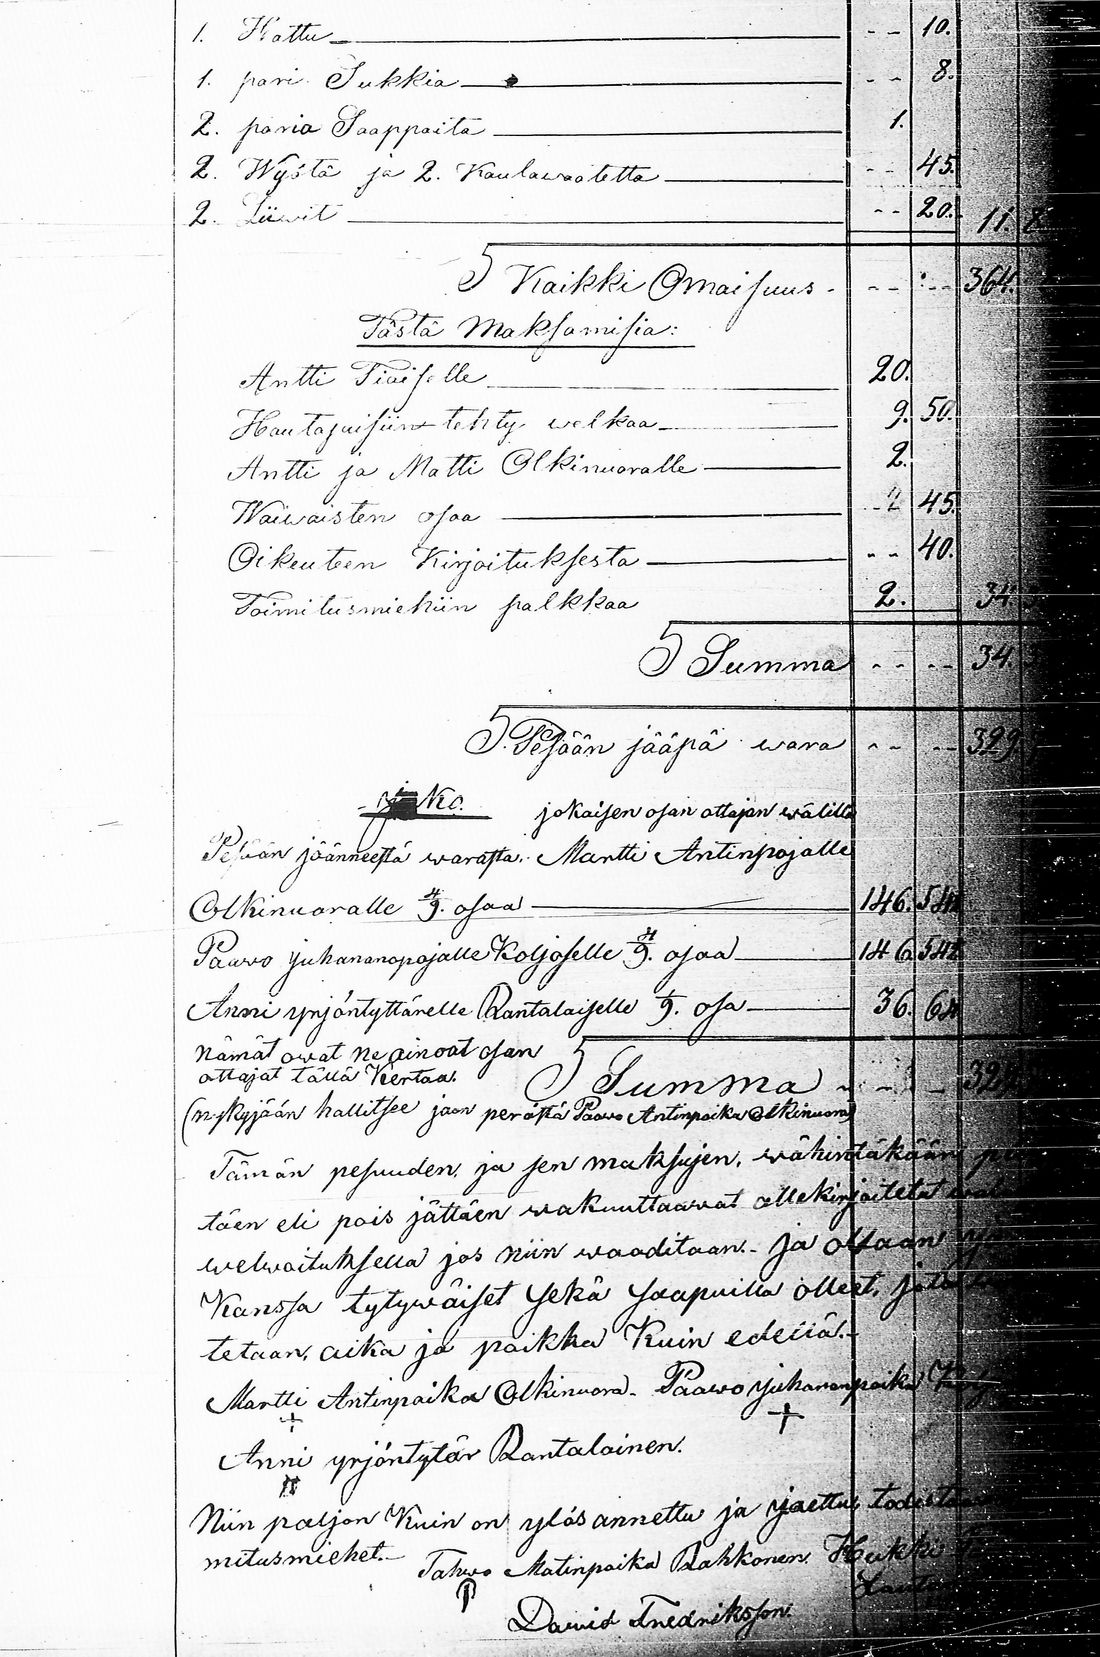 1. Hattu - - 10.
1. pari Sukkia - - 8.
2. paria Saappaita 1.
2. Wyötä ja 2. Kaulawaatetta - - 45.
2. Liiwit - - 20. 11. 8
S Kaikki Omaisuus - - - - - 364.
Tästä Maksamisia:
Antti Tiaiselle 20.
Hautajaisiin tehty welkaa 9. 50.
Antti ja Matti Olkinuoralle 2.
Waiwaisten osaa 45.
Oikeuteen Kirjoituksesta - - 40.
Toimitusmiehiin palkkaa 2. 34.
S Summa - - - - 34.
S. Pesään jääpä wara - - - - 329.
jako. jokaisen osan ottajan wälillä
Pesään jäänneestä warasta. Martti Antinpojalle
Olkinuoralle 4/9. osaa 146. 54
Paawo juhananpojalle Koljoselle 4/9. osaa 146 54
Anni yrjöntyttärelle Rantalaiselle 1/9. osa 36. 64
Nämät owat ne ainoat osan
ottajat tällä Kertaa. S Summa 32
(nykyjään hallitsee jaon perästä Paawo Antinpoika Olkinuora)
Tämän pesuuden, ja sen maksujen, wähintäkään
täen eli pois jättäen wakuuttaawat allekirjoitetut
welwoituksella jos niin waaditaan. ja ollaan
Kanssa tytywäiset sekä saapuilla olleet,
tetaan, aika ja paikka Kuin edellä.-
Martti Antinpoika Olkinuora - Paawo juhananpoika
+ +
Anni yrjöntytär Rantalainen.
Niin paljon Kuin on ylös annettu ja jaettu,
mitusmiehet.- Tahwo Matinpoika Rahkonen. Heikki
Dawid Fredriksson.